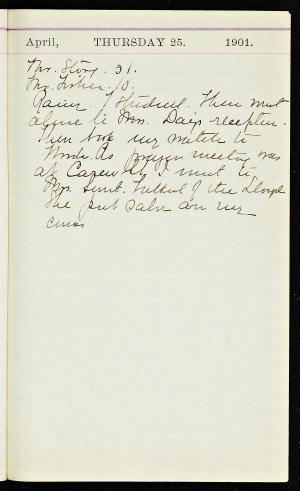 April, THURSDAY 25. 1901.
Mr. Story. 31.
Mr. Fisher. 10.
Rainy. I studied. Then went
alone to Mrs. Day's reception.
Then took my watch to
prayer meeting was
at I went to
Mrs. Talked of the
She put salve on my